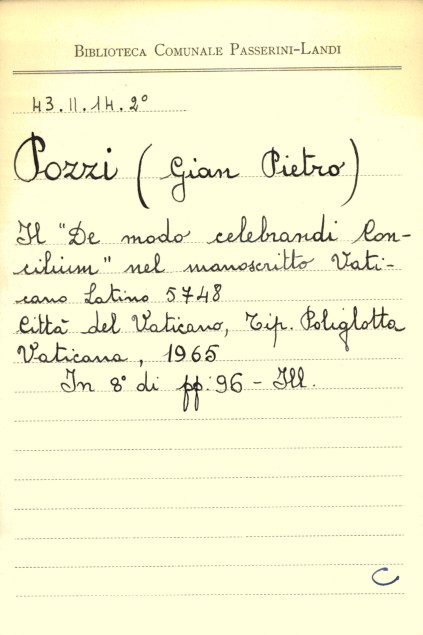 BIBLIOTECA COMUNALE PASSERINI-LANDI
43.II.14.2°
Pozzi (Gian Pietro)
Il "De modo celebrandi Con-
cilium" nel manoscritto Vati-
cano Latino 5748
Città del Vaticano, Tip. Poliglotta
Vaticana, 1965
In 8° di pp. 96 - Ill.
C